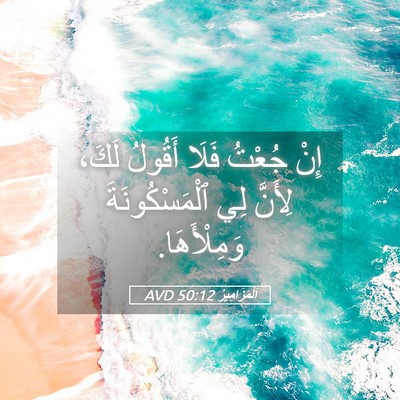 إِنْ جُعْتُ فَلَا أَقُولُ لَكَ،
لِأَنَّ لِي ٱلْمَسْكُونَةَ
وَمِلْأَهَا.
اَلْمَزَامِيرُ 50:12 AVD